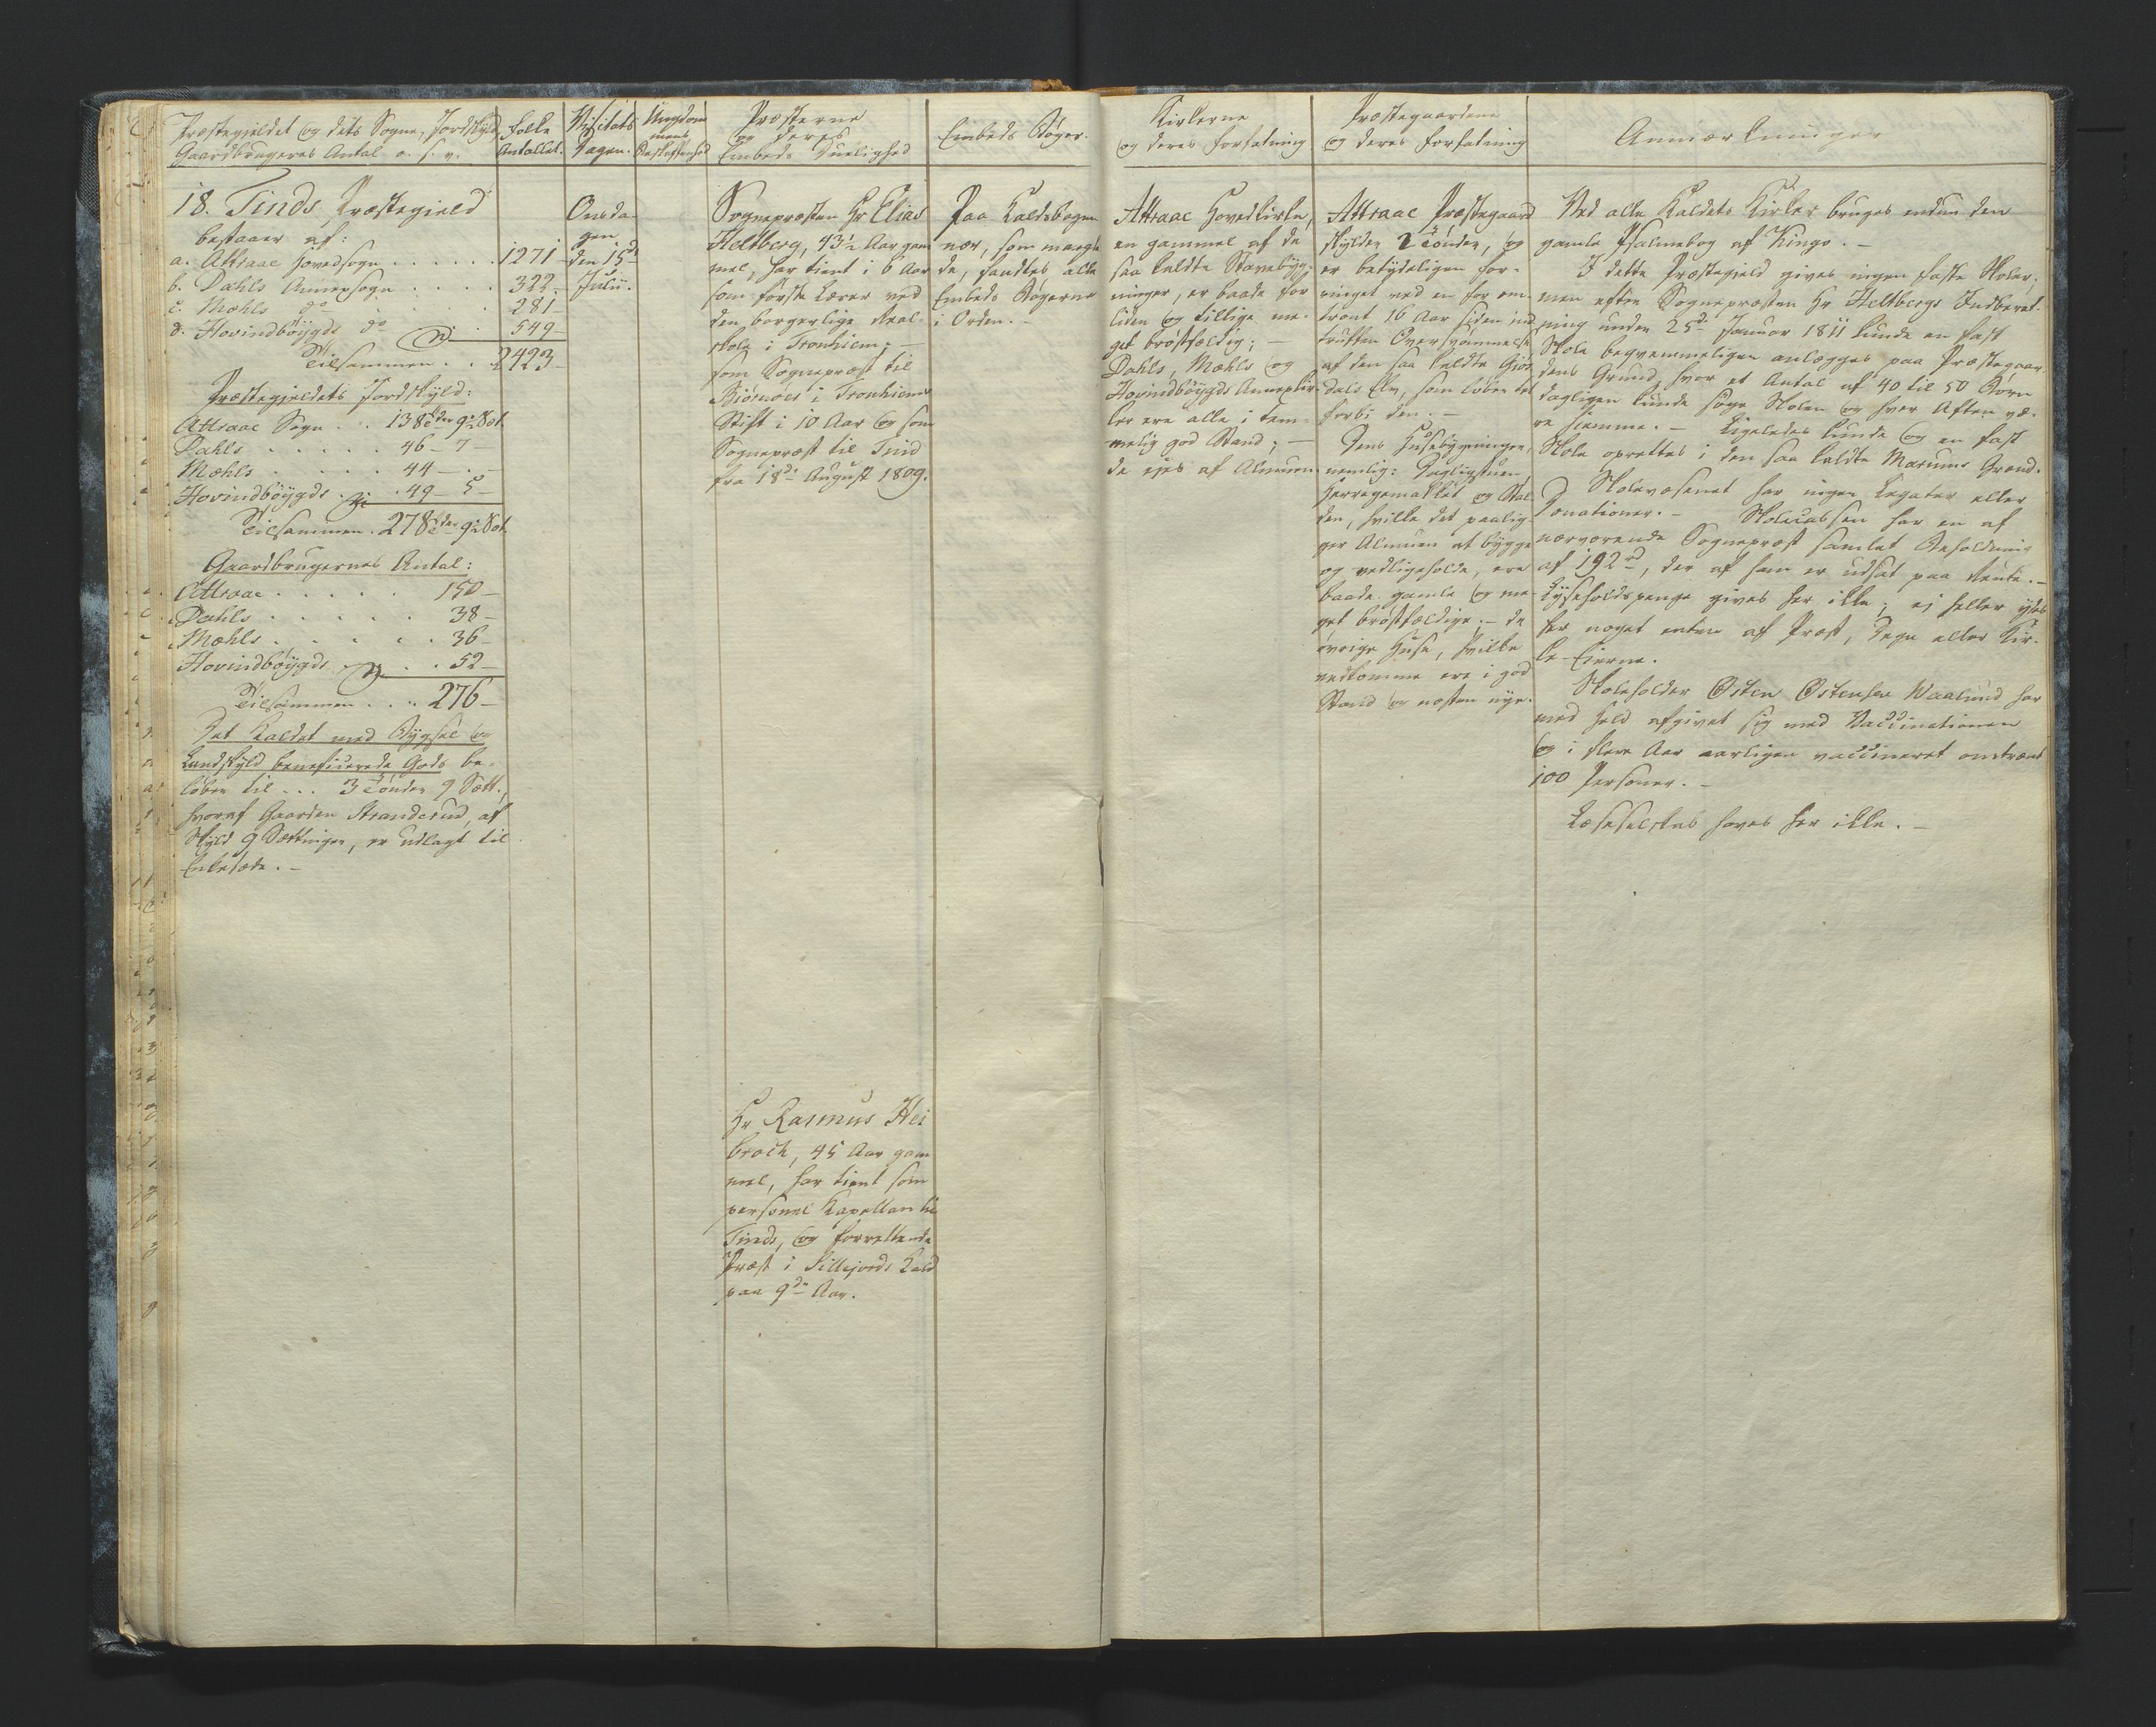 Præstegjeldet og dets Sogne, Jordskyld
Gaardbrugernes Antal o. s. v.
Folke
Antallet.
Visitats
Dagen.
Ungdom
mens
Beskaffenhed
Præsterne
og deres
Embeds Duelighed
Embeds Bøger.
Kirkerne
og deres Forfatning
Præstegaardene
og deres Forfatning
Anmærkninger
18. Tinds Præstegield
bestaaer af:
a. Attraae Hovedsogn . . . . . 1271 –
b. Dahls Annexsogn . . . . 322 –
c. Mæhls do . . . . 281 –
d. Hovindbøygds do . 549 –
Tilsammen . . 2423 –
Præstegieldets Jordskyld:
Attraae Sogn . . 138 Tdr 9½ Set.
Dahls . . . . . 46 – 7 –
Mæhls . . . . . 44 – . –
Hovindbøygds . . 49 – 5 –
Tilsammen . 278 Tdr 9½ Set.
Gaardbrugernes Antal:
Attraae . . . . . 150 –
Dahls . . . . . 38 –
Mæhls . . . . . 36 –
Hovindbøygds . . 52 –
Tilsammen . . . 276 –
Det Kaldet med Bygsel og
Landskyld beneficerede Gods be-
løber til . . . 3 Tønder 9 Sett.,
hvoraf Gaarden Stranderud, af
Skyld 9 Settinger, er udlagt til
Enkesæde. –
Onsda-
gen
den 15de
Julii.
Sognepræsten Hr Elias
Heltberg, 43½ Aar gam-
mel, har tient i 6 Aar
som første Lærer ved
den borgerlige Real-
skole i Tronhiem; –
som Sognepræst til
Biørnøer i Tronhiems
Stift i 10 Aar og som
Sognepræst til Tind
fra 18de August 1809.
Hr Rasmus Hei
broch, 45 Aar gam
mel, har tient som
personel Kapellan til
Tinds, og forrettende
Præst i Sillejords Kald
paa 9de Aar.
Paa Kaldsbogen
nær, som mangle-
de, fandtes alle
Embeds Bøgerne
i Orden. –
Attraae Hovedkirke,
en gammel af de
saa kaldte Stavebyg-
ninger, er baade for
liden og tillige me-
get brøstfældig; –
Dahls, Mæhls og
Hovindbøygds Annexkir-
ker ere alle i tem-
melig god Stand; –
de ejes af Almuen.
Attraae Præstegaard
skylder 2 Tønder, og
er betydeligen for-
ringet ved en for om-
trent 16 Aar siden ind-
truffen Oversvømmelse
af den saa kaldte Giøs
dals Elv, som løber tet
forbi den. –
Dens Huusebygninger,
nemlig: Dagligstuen
Herregemakket og Stal-
den, hvilke det paalig-
ger Almuen at bygge
og vedligeholde, ere
baade gamle og me-
get brøstfældige; – de
øvrige Huse, hvilke
vedkomme ere i god
Stand og næsten nye.
Ved alle Kaldets Kirker bruges endnu den
gamle Psalmebog af Kingo. –
I dette Præstegield gives ingen faste Skoler,
men efter Sognepræsten Hr Heltbergs Indberet-
ning under 25de Januar 1811 kunde en fast
Skole beqvemmeligen anlægges paa Præstegaar-
dens Grund, hvor et Antal af 40 til 50 Børn
dagligen kunde søge Skolen og hver Aften væ-
re hiemme. – Ligeledes kunde og en fast
Skole oprettes i den saa kaldte Marums Grænd.
Skolevæsenet har ingen Legater eller
Donationer. – Skolecassen har en af
nærværende Sognepræst samlet Beholdning
af 192 rd, der af ham er udsat paa Rente. –
Lyseholdspenge gives her ikke; ej heller ydes
her noget enten af Præst, Degn eller Kir-
ke-Eierne.
Skoleholder Østen Østensen Waalund har
med Held afgivet sig med Vaccinationen
og i flere Aar aarligen vaccineret omtrent
100 Personer. –
Læseselskab haves her ikke. –